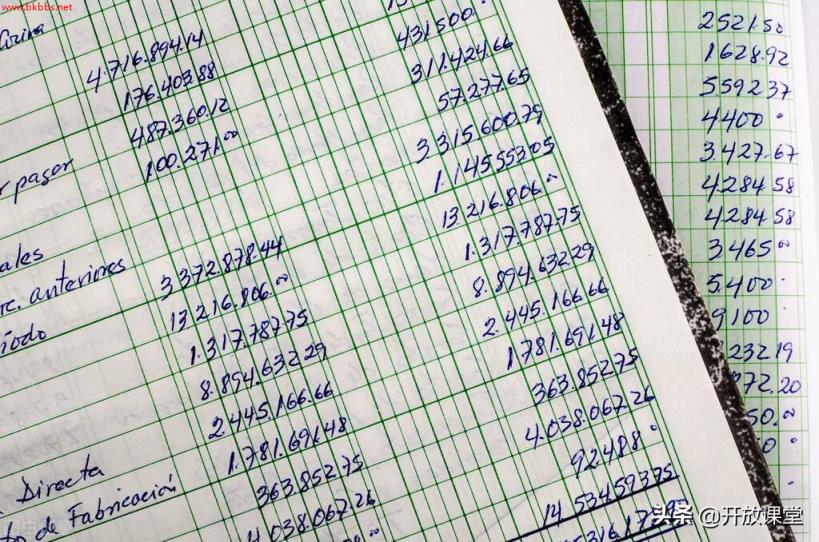 www.bkbbs.net
4.716.894.14
176.403.88
487.360.12
r pagar 100.271.00
ales
rc. anteriores 3372.878.44
íodo 13216.806.00
1.317.787.75
8.894.632.29
2445.166.66
1.781.691.48
Directa 363.852.75
to de Fabricación 4.038.067.26
431500
311.424.66
57.277.65
3315600.79
1.145553.05
13216.806.00
1.317.787.75
8.894.632.29
2.445.166.66
1.781.691.48
363.852.75
4.038.067.26
92.488.
14.534.593.75
2521.50
1628.92
5592.37
4400.
3.427.67
4.284.58
4284.58
3465.00
5.400.
9100.
232.19
972.20
50.00
0.
头条 @开放课堂